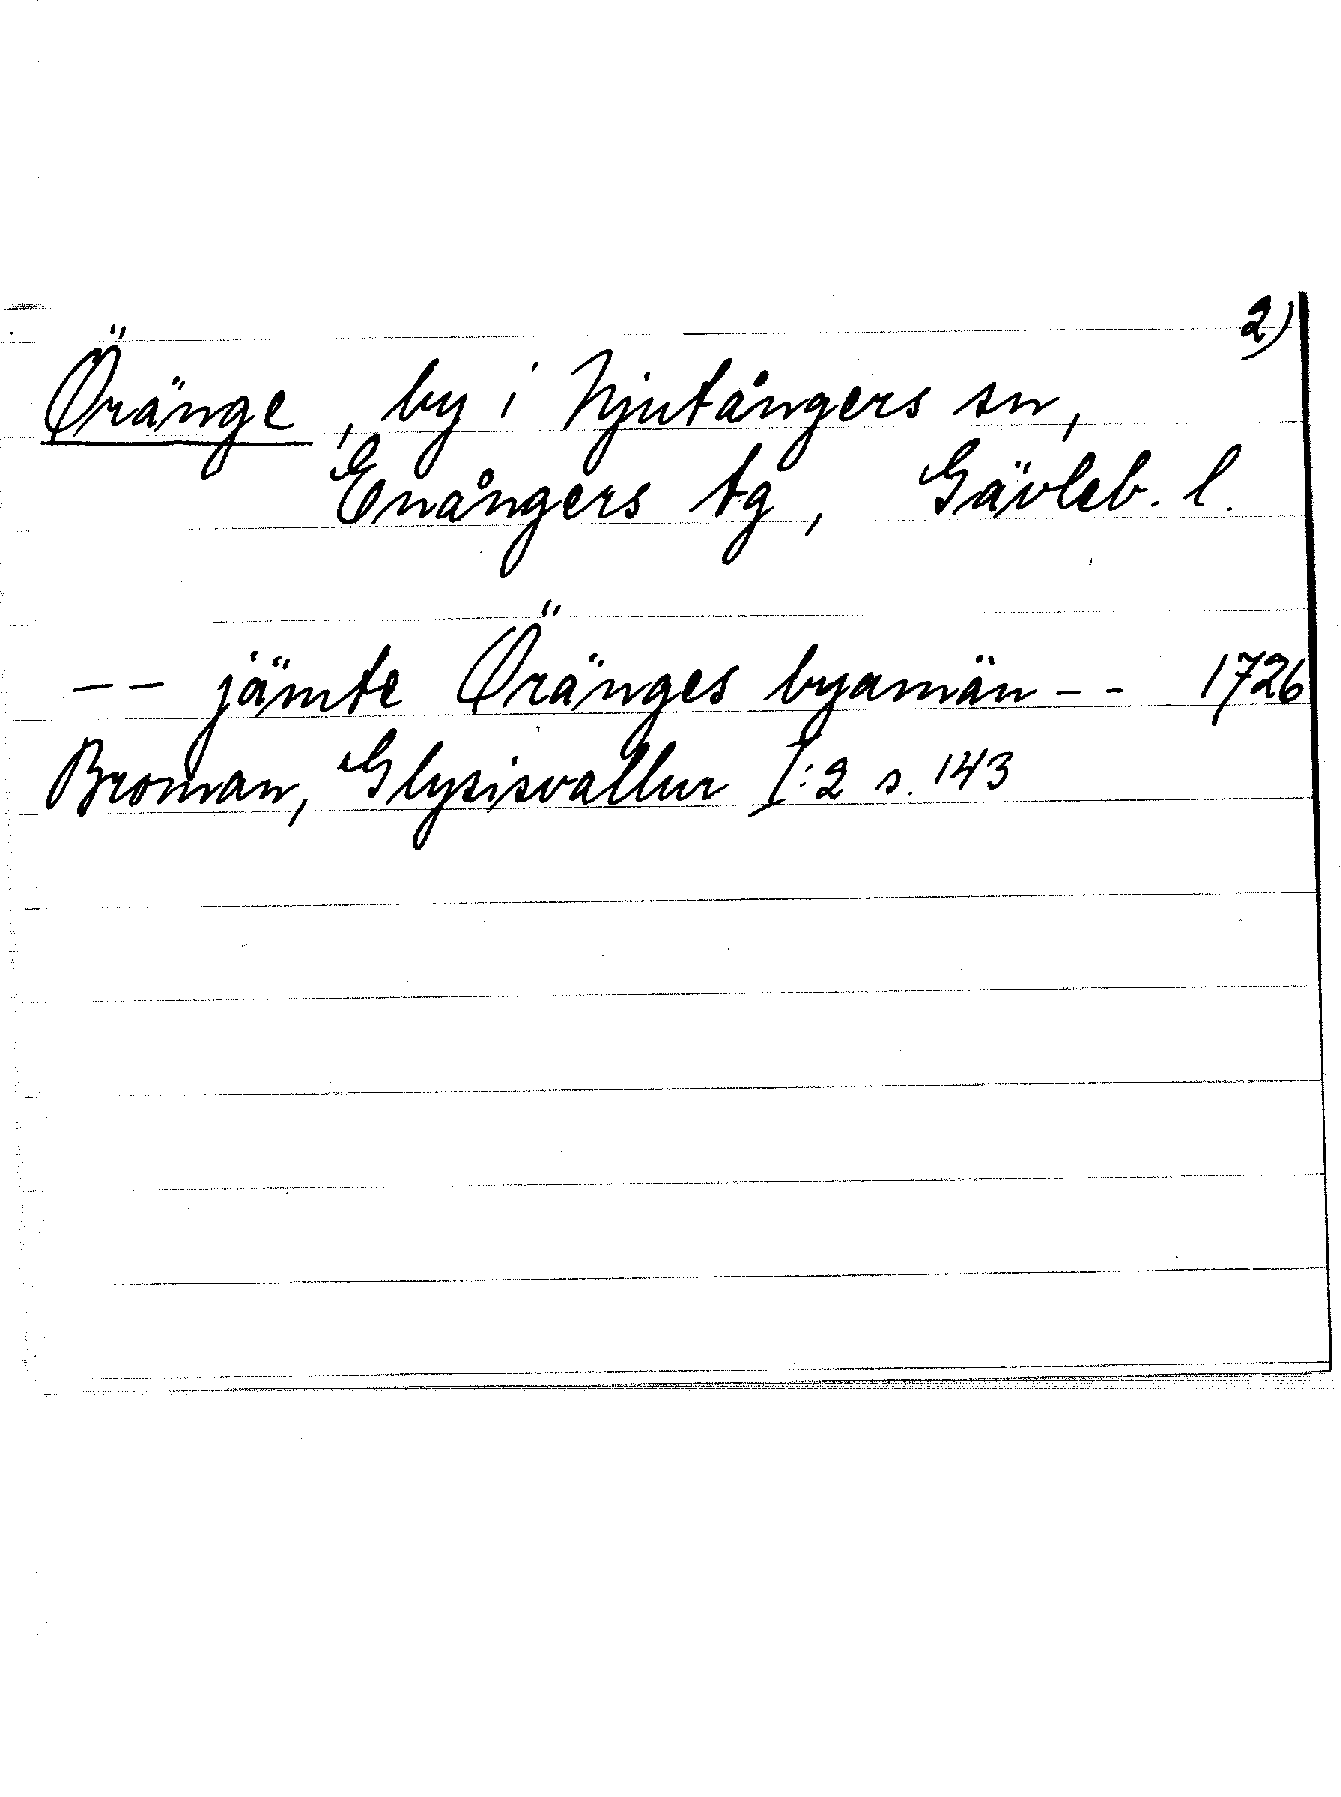 2)
Öränge, by i Njutångers sn,
Enångers tg, Gävleb. l.
-- jämte Öränges byamän -- 1726
Broman, Glysisvallur I:2 s. 143